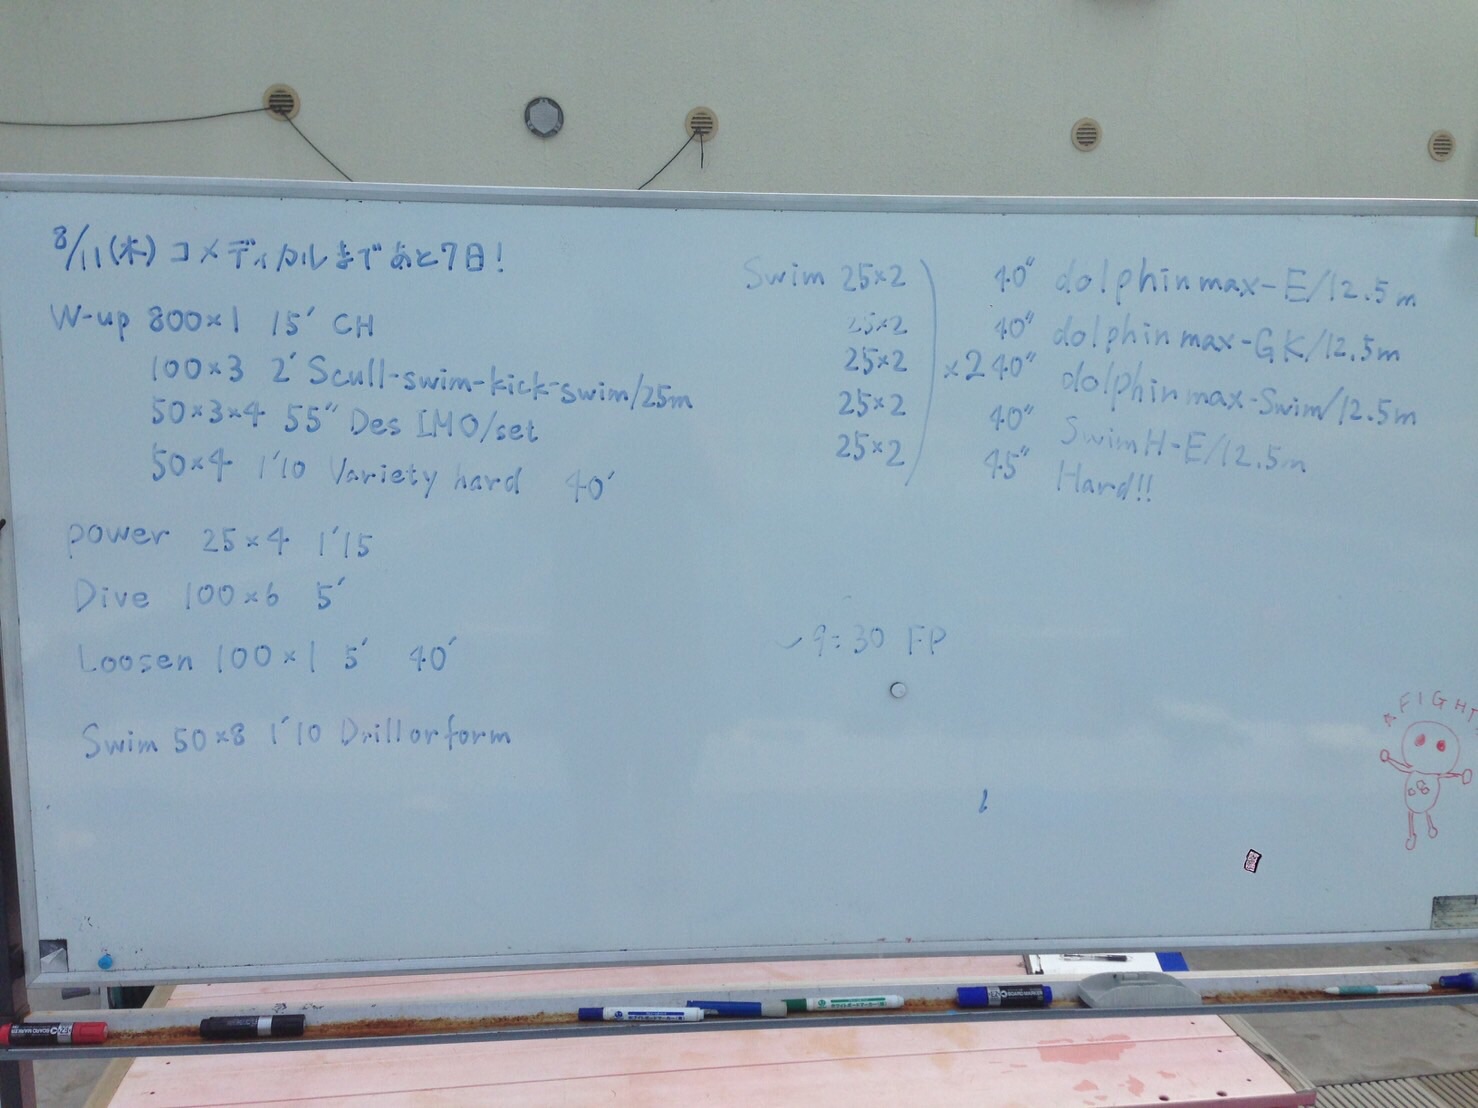 8/11(木) コメディカルまであと7日!
W-up 800×1 15' CH
100×3 2' Scull-swim-kick-swim/25m
50×3×4 55" Des IMO/set
50×4 1'10 Variety hard 40'
power 25×4 1'15
Dive 100×6 5'
Loosen 100×1 5' 40'
Swim 50×8 1'10 Drill or form
Swim 25×2 40" dolphin max-E/12.5m
25×2 40" dolphin max-GK/12.5m
25×2 ×2 40" dolphin max-Swim/12.5m
25×2 40" Swim H-E/12.5m
25×2 45" Hard!!
~9:30 FP
FIGHT